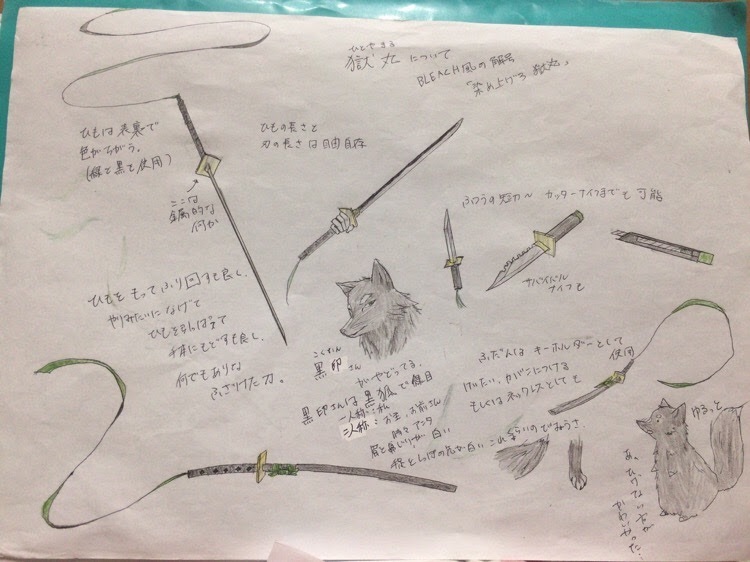 ひとやまる
獄丸について
BLEACH風の解号
「染め上げろ 獄丸」
ひもは表裏で
色がちがう。
(緑と黒を使用)
ここは
金属的な
何か
ひもの長さと
刃の長さは自由自存
ふつうの短刀〜 カッターナイフまでも可能
サバイバル
ナイフも
ひもをもってふり回すも良し、
やりみたいになげて
ひもを引っぱって
手にもどすも良し、
何でもありな
ふざけた刀。
こくいん
黒印さん
がやどってる。
黒印さんは黒狐で緑目
一人称:私
二人称:お主、お前さん
時々アンタ
眉と鼻じりが白い
ふだんはキーホルダーとして
使用
けいたい、カバンにつける
もしくはネックレスとしても
ゆるっと
あ、ひげない方が
かわいかった…